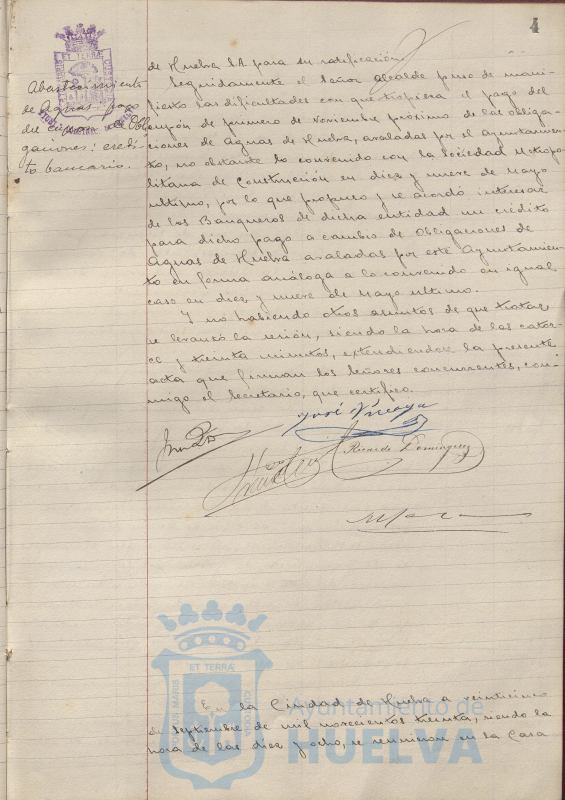 4
Abastecimiento
de Aguas: pago
del cupón de Obli
gaciones: crédi
to bancario.
de Huelva S.A. para su ratificación.
Seguidamente el Señor Alcalde puso de mani-
fiesto las dificultades con que tropieza el pago del
cupón de primero de Noviembre próximo de las obliga-
ciones de Aguas de Huelva, avaladas por el Ayuntamien-
to, no obstante lo convenido con la Sociedad Metropo-
litana de Construcción en diez y nueve de Mayo
último, por lo que propuso y se acordó interesar
de los Banqueros de dicha entidad un crédito
para dicho pago a cambio de Obligaciones de
Aguas de Huelva avaladas por este Ayuntamien-
to en forma análoga a lo convenido en igual
caso en diez y nueve de Mayo último.
Y no habiendo otros asuntos de que tratar
se levantó la sesión, siendo la hora de las cator-
ce y treinta minutos, extendiéndose la presente
acta que firman los Señores concurrentes, con-
migo el Secretario, que certifico.
José Vizcaya
Ricardo Domínguez
ET TERRÆ
PORTUS MARIS
CUSTODIA
Ayuntamiento de
HUELVA
En la Ciudad de Huelva a veinticinco
de Septiembre de mil novecientos treinta, siendo la
hora de las diez y ocho, se reunieron en la Casa